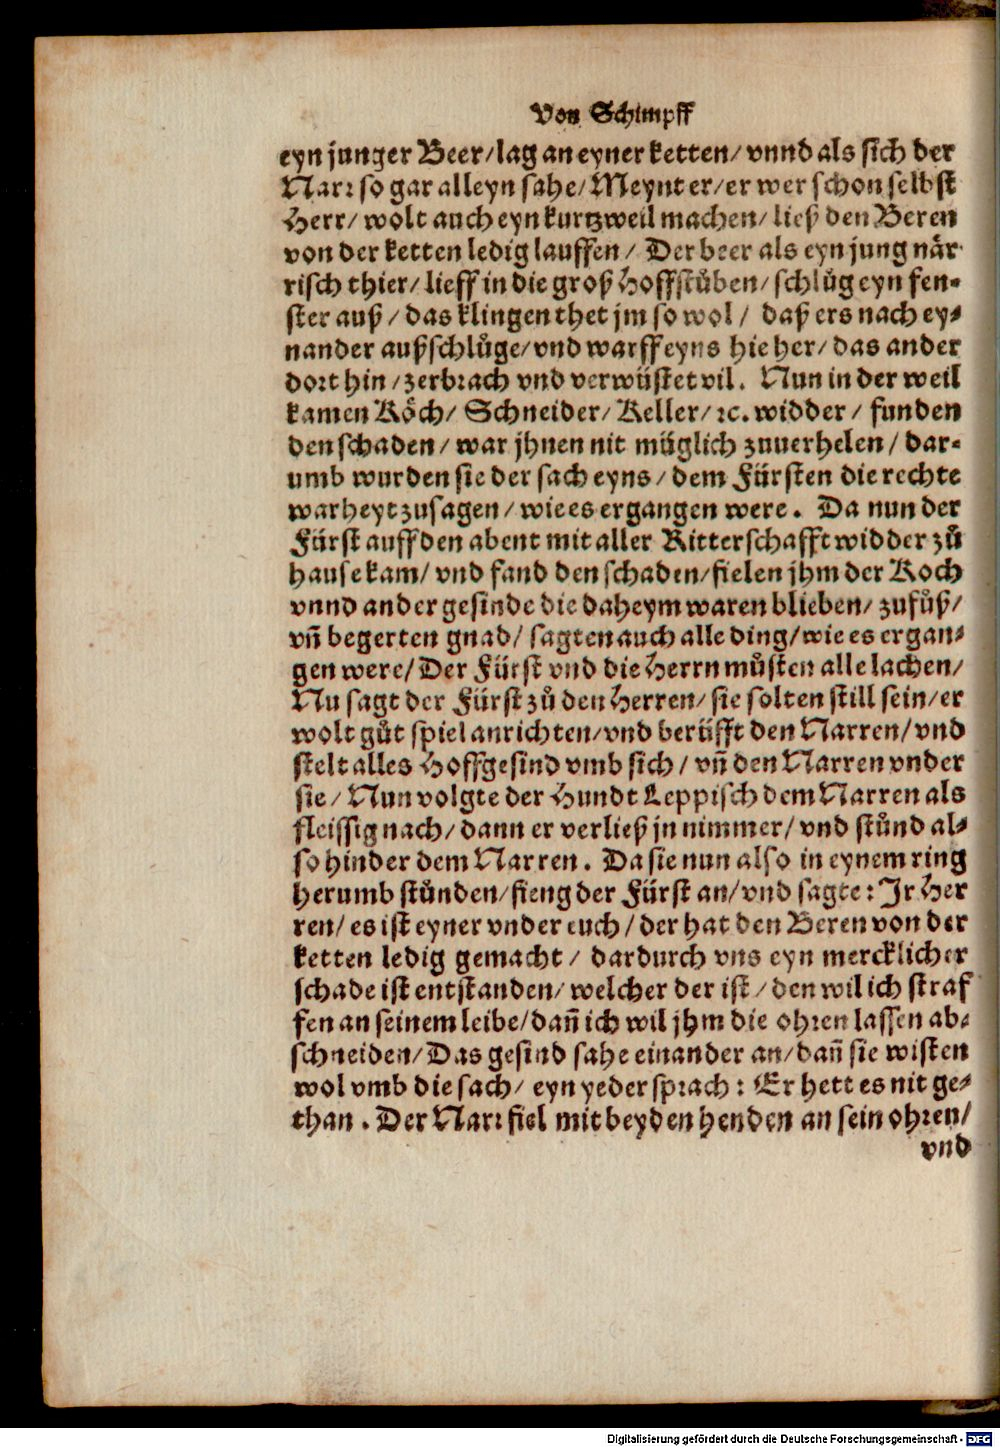 Von Schimpff
eyn junger Beer/ lag an eyner ketten/ vnnd als sich der
Narr so gar alleyn sahe/ Meynt er/ er wer schon selbst
Herr/ wolt auch eyn kurtzweil machen/ ließ den Beren
von der ketten ledig lauffen/ Der beer als eyn jung när-
risch thier/ lieff in die groß Hoffstůben/ schlůg eyn fen-
ster auß/ das klingen thet jm so wol/ daß ers nach ey-
nander außschlůge/ vnd warff eyns hie her/ das ander
dort hin/ zerbrach vnd verwüstet vil. Nun in der weil
kamen Köch/ Schneider/ Keller/ ꝛc. widder/ funden
den schaden/ war jhnen nit müglich zuuerhelen/ dar-
umb wurden sie der sach eyns/ dem Fürsten die rechte
warheyt zusagen/ wie es ergangen were. Da nun der
Fürst auff den abent mit aller Ritterschafft widder zů
hause kam/ vnd fand den schaden/ fielen jhm der Koch
vnnd ander gesinde die daheym waren blieben/ zufůß/
vñ begerten gnad/ sagten auch alle ding/ wie es ergan-
gen were/ Der Fürst vnd die Herrn můsten alle lachen/
Nu sagt der Fürst zů den Herren/ sie solten still sein/ er
wolt gůt spiel anrichten/ vnd berüfft den Narren/ vnd
stelt alles Hoffgesind vmb sich/ vñ den Narren vnder
sie/ Nun volgte der Hundt Leppisch dem Narren als
fleissig nach/ dann er verließ jn nimmer/ vnd stůnd al-
so hinder dem Narren. Da sie nun also in eynem ring
herumb stůnden/ fieng der Fürst an/ vnd sagte: Jr Her
ren/ es ist eyner vnder euch/ der hat den Beren von der
ketten ledig gemacht/ dardurch vns eyn mercklicher
schade ist entstanden/ welcher der ist/ den wil ich straf
fen an seinem leibe/ dañ ich wil jhm die ohren lassen ab-
schneiden/ Das gesind sahe einander an/ dañ sie wisten
wol vmb die sach/ eyn yeder sprach: Er hett es nit ge-
than. Der Narr fiel mit beyden henden an sein ohren/
vnd
Digitalisierung gefördert durch die Deutsche Forschungsgemeinschaft - DFG